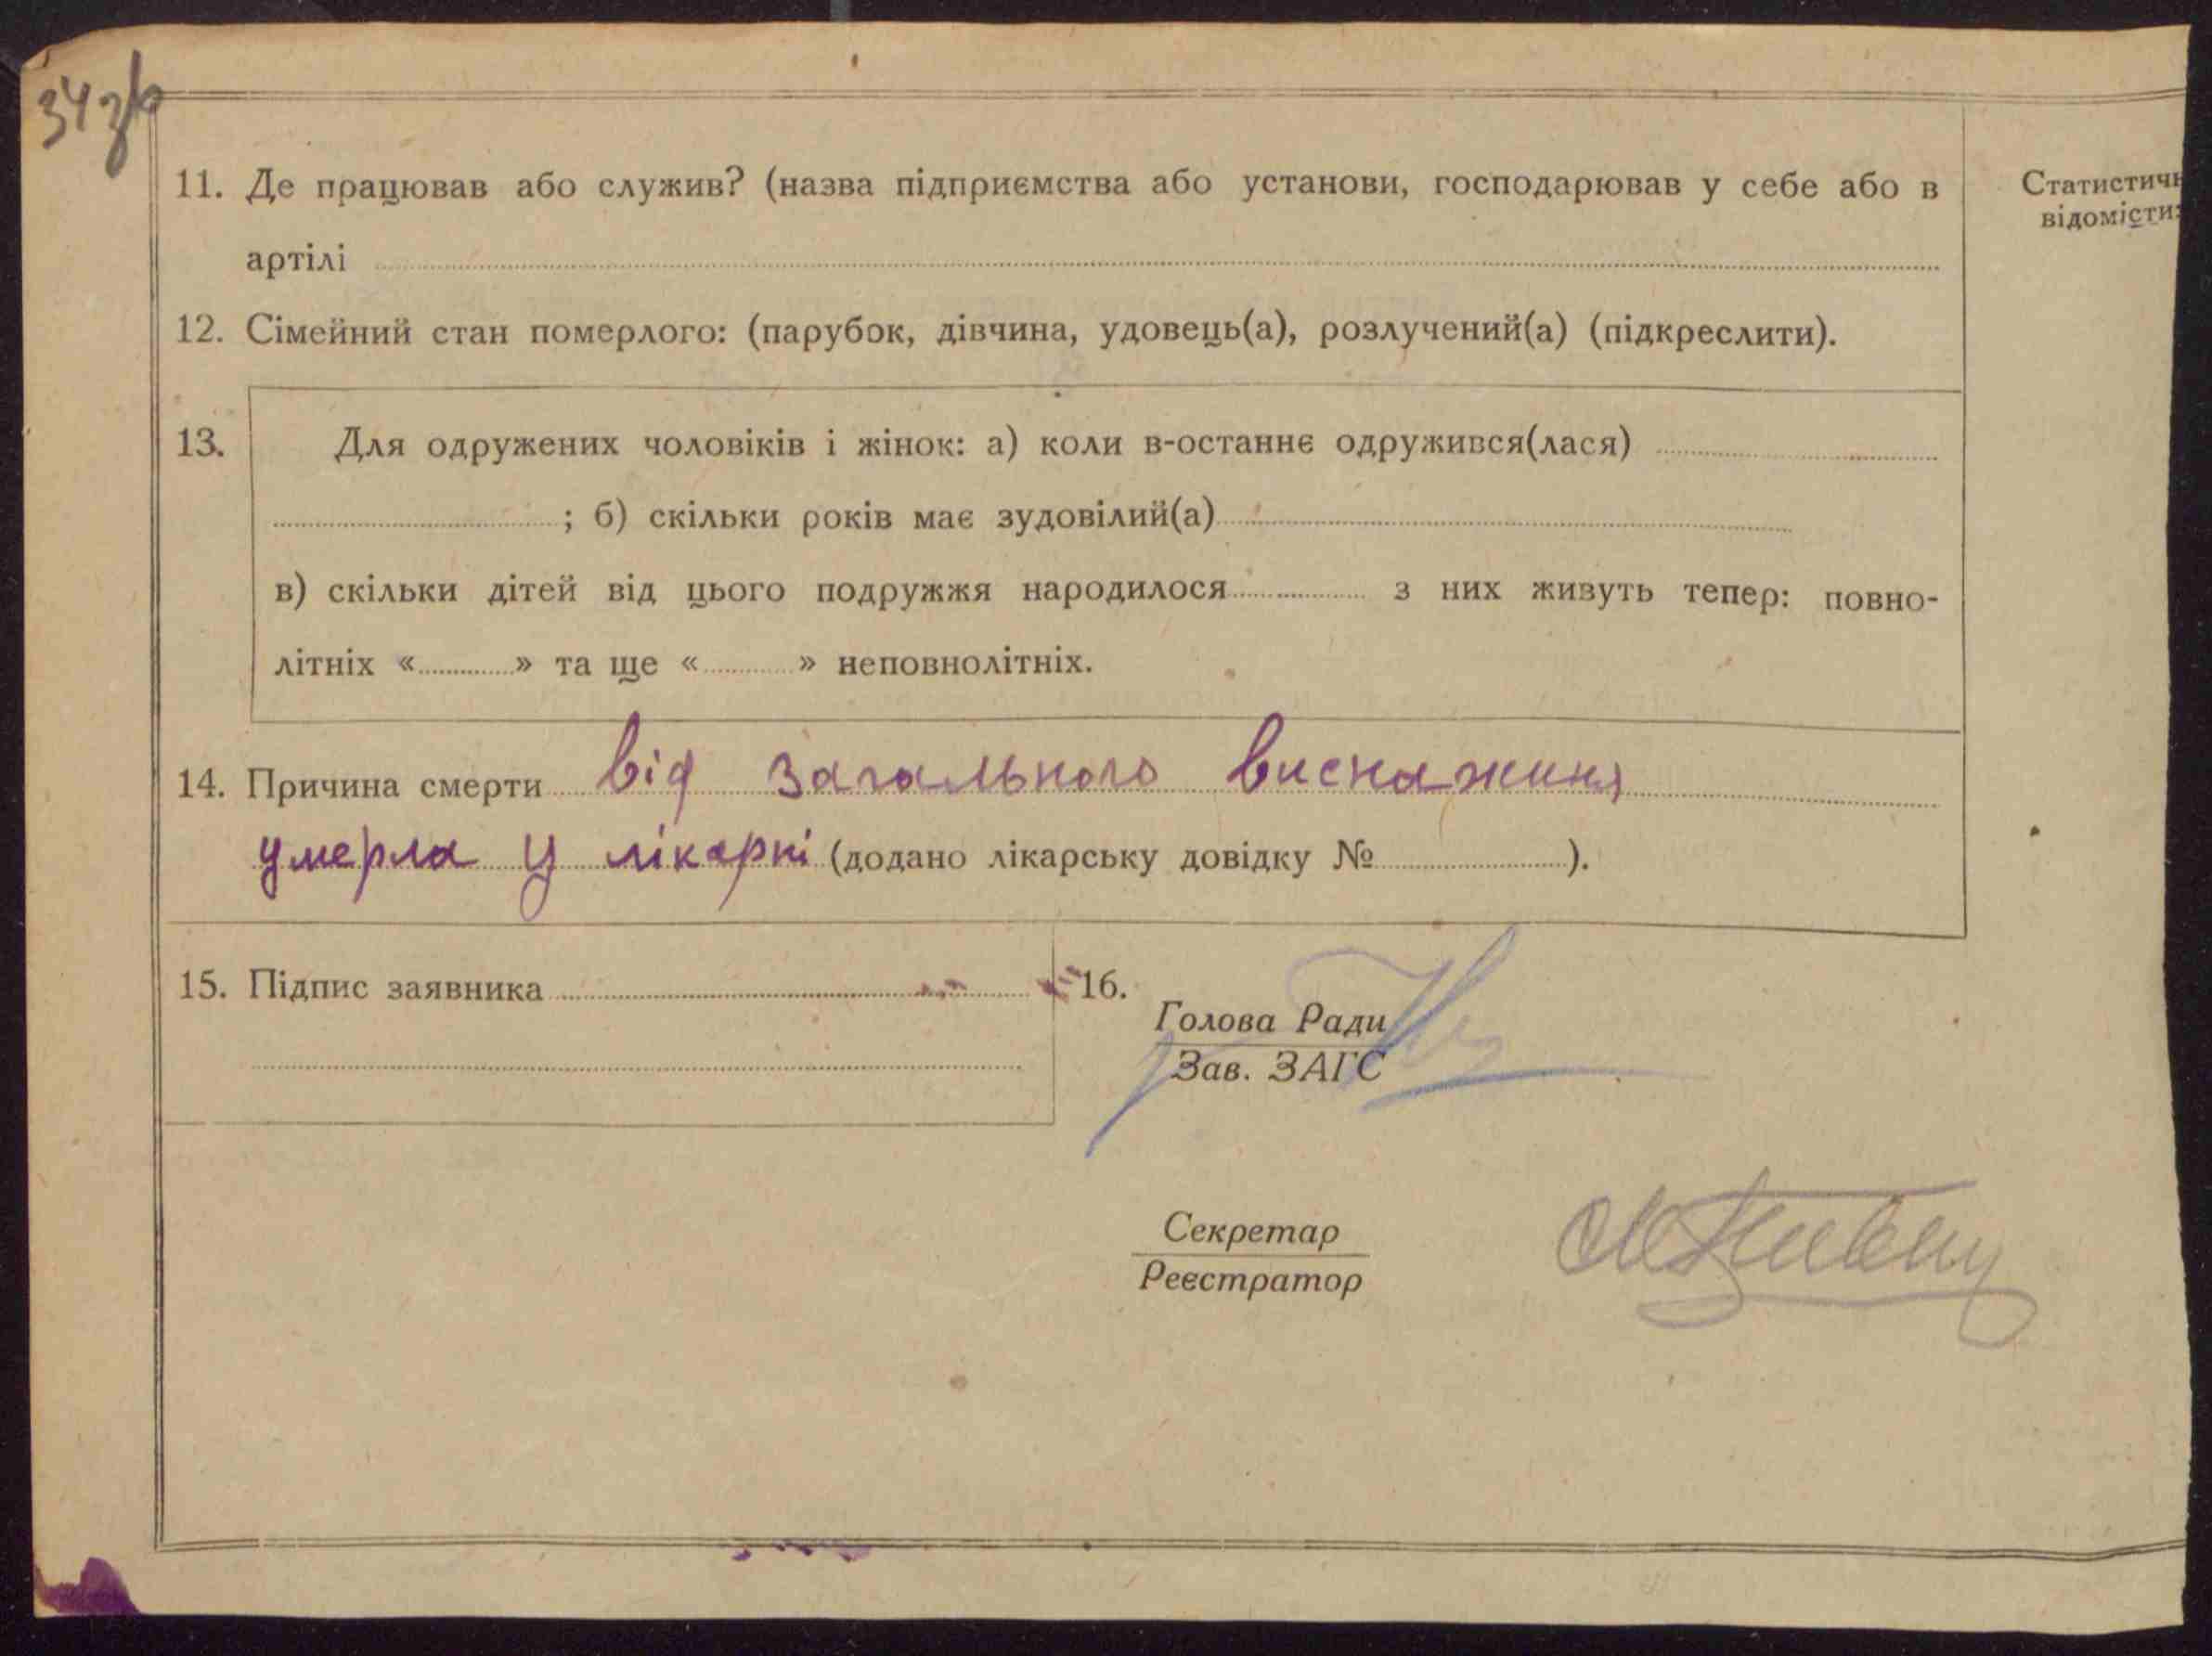 34 зв
11. Де працював або служив? (назва підприємства або установи, господарював у себе або в
артілі
12. Сімейний стан померлого: (парубок, дівчина, удовець(а), розлучений(а) (підкреслити).
13. Для одружених чоловіків і жінок: а) коли в-останнє одружився(лася)
; б) скільки років має зудовілий(а)
в) скільки дітей від цього подружжя народилося з них живуть тепер: повно-
літніх « » та ще « » неповнолітніх.
14. Причина смерти від загального виснаженя
умерла у лікарні (додано лікарську довідку № ).
15. Підпис заявника
16.
Голова Ради
Зав. ЗАГС
Секретар
Реєстратор
Статистичн
відомісти